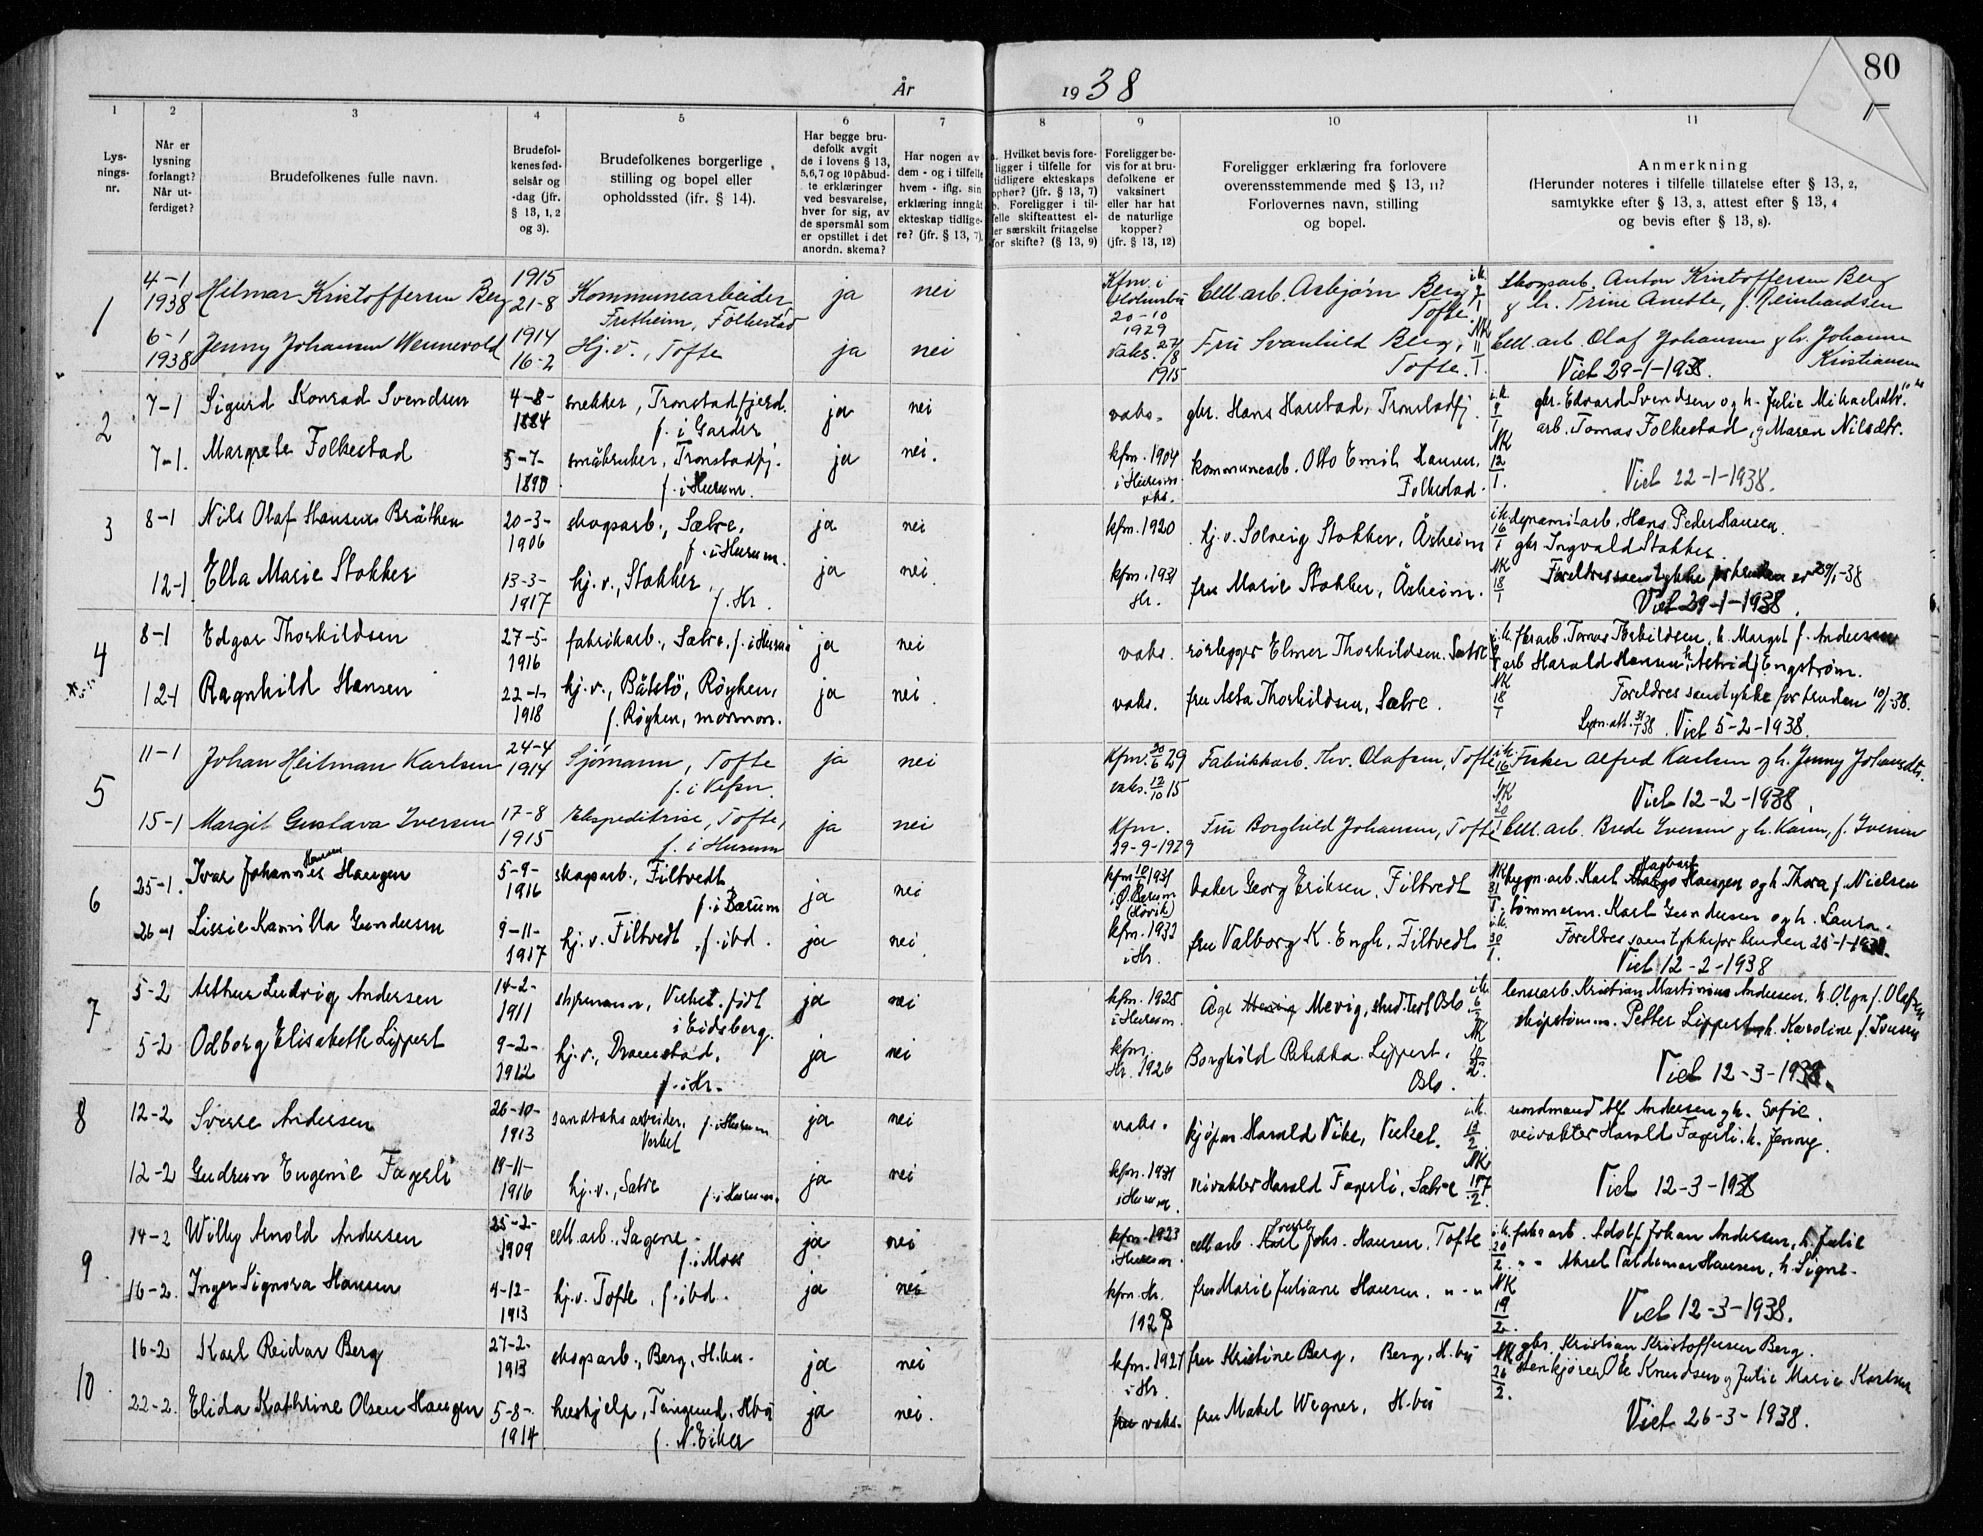 80
År 1938
1
1 2 3 4 5 6 7 8 9 10 11
Lys-
nings-
nr.
Når er
lysning
forlangt?
Når ut-
ferdiget?
Brudefolkenes fulle navn.
Brudefol-
kenes fød-
selsår og
-dag (jfr.
§ 13, 1, 2
og 3).
Brudefolkenes borgerlige
stilling og bopel eller
opholdssted (ifr. § 14).
Har begge bru-
defolk avgit
de i lovens § 13,
5,6,7 og 10 påbud-
te erklæringer
ved besvarelse,
hver for sig, av
de spørsmål som
er opstillet i det
anordn. skema?
Har nogen av
dem - og i tilfelle
hvem - iflg. sin
erklæring inngått
ekteskap tidlige-
re? (jfr. § 13, 7).
a. Hvilket bevis fore-
ligger i tilfelle for
tidligere ekteskaps
ophør? (jfr. § 13, 7)
b. Foreligger i til-
felle skifteattest el-
ler særskilt fritagelse
for skifte? (§ 13, 9)
Foreligger be-
vis for at bru-
defolkene er
vaksinert
eller har hat
de naturlige
kopper?
(jfr. § 13, 12)
Foreligger erklæring fra forlovere
overensstemmende med § 13, 11?
Forlovernes navn, stilling
og bopel.
Anmerkning
(Herunder noteres i tilfelle tillatelse efter § 13, 2,
samtykke efter § 13, 3, attest efter § 13, 4
og bevis efter § 13, 8).
1
4-1
1938
Hilmar Kristoffersen Berg
1915
21-8
Kommunearbeider,
Fretheim, Folkestad
ja
nei
Kfm. i
20-10
1929
Cell. arb. Asbjørn Berg
Tofte.
Skogsarb. Anton Kristoffersen Berg
g h. Trine Anette, f. Reinhardsen
6-1
1938
Jenny Johansen Wennevold
1914
16-2
Hj.v., Tofte
ja
nei
Vaks. 27/8
1915
Fru Svanhild Berg,
Tofte.
NK
11
1.
Cell. arb. Olaf Johansen g h. Johanne
Kristiansen
Viet 29-1-1938.
2
7-1
Sigurd Konrad Svendsen
4-8-
1884
snekker, Tronstadfjerd.
f. i Garder
ja
nei
vaks.
gbr. Hans Haustad, Tronstadfj.
i.k.
9
1
gbr. Edvard Svendsen og h. Julie Mikaelsdtr.
arb. Tomas Folkestad, g Maren Nilsdtr.
7-1.
Margrete Folkestad
5-7-
1890
småbruker, Tronstadfj.
f. i Hurum.
ja
nei.
kfm. 1904
i Hurum
vaks.
kommunearb. Otto Emil Hansen,
Folkestad.
NK
12
1.
Viet 22-1-1938.
3
8-1
Nils Olaf Hansen Bråthen
20-3-
1906
skogsarb., Sætre,
f. i Hurum.
ja
nei
kfm. 1920
hj.v. Solveig Stokker, Åsheim
i.k.
16
1
dynamitarb. Hans Peder Hansen.
gbr Ingvald Stokker.
12-1
Ella Marie Stokker
13-3-
1917
hj.v., Stokker,
f. Hr.
ja
nei.
kfm. 1931
Hr.
fru Marie Stokker, Åsheim.
NK
18
1
Foreldres samtykke for bruden er 20/1-38
Viet 29-1-1938.
4
8-1
Edgar Thorkildsen
27-5-
1916
fabrikarb., Sætre. f. i Hurum
ja
nei
vaks.
rørlegger Elmer Thorkildsen. Sætre
i.k.
fbr.arb. Tomas Torkildsen, h. Margit f. Andersen
arb Harald Hansen, h. Astrid f. Engstrøm.
12-1
Ragnhild Hansen
22-1-
1918
hj.v., Båtstö, Røyken,
f. Røyken, mormon.
ja
nei.
vaks.
fru Asta Thorkildsen, Sætre.
NK
18
1
Foreldres samtykke for bruden 10/1-38.
Lysn. att. 31/1 38. Viet 5-2-1938.
5
11-1
Johan Heitman Karlsen
24-4
1914
Sjømann, Tofte
f. i Vefsn.
ja
nei
Kfm. 30/6 29
vaks. 12/10 15
Fabrikkarb. Thv. Olafsen, Tofte
i.k.
16
1
Fisker Alfred Karlsen g h. Jenny Johansdtr.
Viet 12-2-1938.
15-1
Margit Gustava Iversen
17-8
1915
Ekspeditrise, Tofte,
f. i Hurum
ja
nei
Kfm.
29-9-1929
Fru Borghild Johansen, Tofte
NK
20
1
Cell. arb. Brede Iversen g h. Karen, f. Iversen
6
25-1.
Ivar Johannes Hansen Haugen
5-9-
1916
skogsarb., Filtvedt
f. i Bærum
ja
nei
kfm 1931
i Ø. Bærum
(Høvik)
baker Georg Eriksen, Filtvedt
NK
31
1.
bygn. arb. Karl Hagbart Haugen og h. Thora f. Nielsen
tømmerm. Karl Gundersen og h. Laura.
26-1
Lissie Kamilla Gundersen
9-11-
1917
hj.v. Filtvedt, f. ibd.
ja
nei.
kfm. 1932
i Hr.
fru Valborg K. Engh, Filtvedt
i.k.
30
1.
Foreldres samtykke for bruden 25-1-1938.
Viet 12-2-1938
7
5-2
Arthur Ludvig Andersen
14-2-
1911
styrmann, Verket. født
i Eidsberg.
ja
nei
kfm. 1925
i Hurum.
Åge Mevig, stud. Oslo
i.k.
6
2
lensearb. Kristian Martinius Andersen, h. Olga f. Olafsen
skipstømm. Petter Lippert og h. Karoline f. Iversen
5-2
Odborg Elisabeth Lippert
9-2-
1912
hj.v., Dramstad,
f. i Hr.
ja
nei
kfm.
Hr. 1926
Borghild Rebekka Lippert,
Oslo.
NK
Viet 12-3-1938.
8
12-2
Sverre Andersen
26-10-
1913
sandtaksarbeider, f. i Hurum
Verket
ja
nei
vaks.
kjøpm. Harald Vike, Verket.
i.k.
13
2
nordmand Alf Andersen g h. Sofie.
veivokter Harald Fagerli, h. Jenny.
12-2
Gudrun Eugenie Fagerli
19-11-
1916
hj.v., Sætre f. i Hurum.
ja
nei
kfm. 1931
i Hurum.
veivokter Harald Fagerli, Sætre
NK
Viet 12-3-1938
9
14-2
Willy Arnold Andersen
25-2-
1909
cell. arb., Sagene.
f. i Moss
ja
nei
kfm. 1923
i Hurum.
cell arb. Sverre Johs. Hansen, Tofte
i.k.
20
2.
fabr. arb. Adolf Johan Andersen, h. Julie
" " Aksel Valdemar Hansen, h. Signe.
16-2.
Inger Signora Hansen
4-12-
1913
hj.v. Tofte, f. ibd.
ja
nei
kfm. Hr.
1928
fru Marie Juliane Hansen, " - "
NK
19
2.
Viet 12-3-1938.
10
16-2
Karl Reidar Berg
27-2-
1913
skogsarb., Berg, H.bu.
ja
nei
kfm. 1927
i Hr.
fru Kristine Berg, Berg, H.bu
NK
26
2.
gbr. Kristian Kristoffersen Berg.
stenkjører Ole Knudsen g Julie Marie Karlsen
22-2.
Elida Kathrine Olsen Haugen
5-8-
1914
hushjelp, Tangund, Hbu
f. N. Eiker
ja
nei.
vaks.
fru Makel Wegner, H.bu
Viet 26-3-1938.